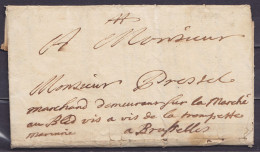 A Monsieur
Monsieur Pressel
marchand demeurant sur la Marché
au Bled vis a vis de la trompette
marinne
a Bruxelles